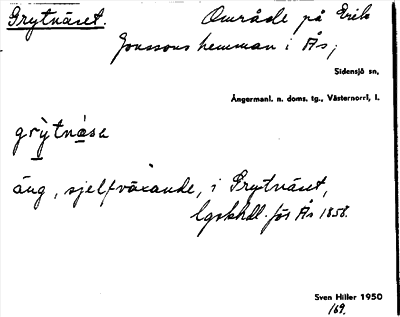 Grytnäset. Område på Eriks
Jonssons hemman i Ås,
Sidensjö sn,
Ångermanl. n. doms. tg., Västernorrl, l.
grỳtnása
äng, sjelfväxande, i Grytnäset,
lgskhdl. för Ås 1858.
Sven Hiller 1950
169.